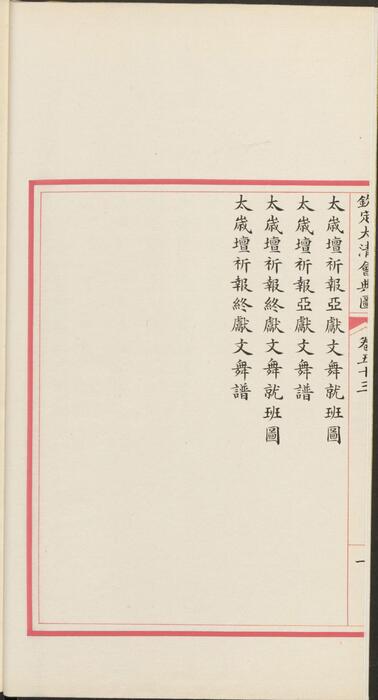 欽定大清會典圖 卷五十三 一
太歲壇祈報亞獻文舞就班圖
太歲壇祈報亞獻文舞譜
太歲壇祈報終獻文舞就班圖
太歲壇祈報終獻文舞譜